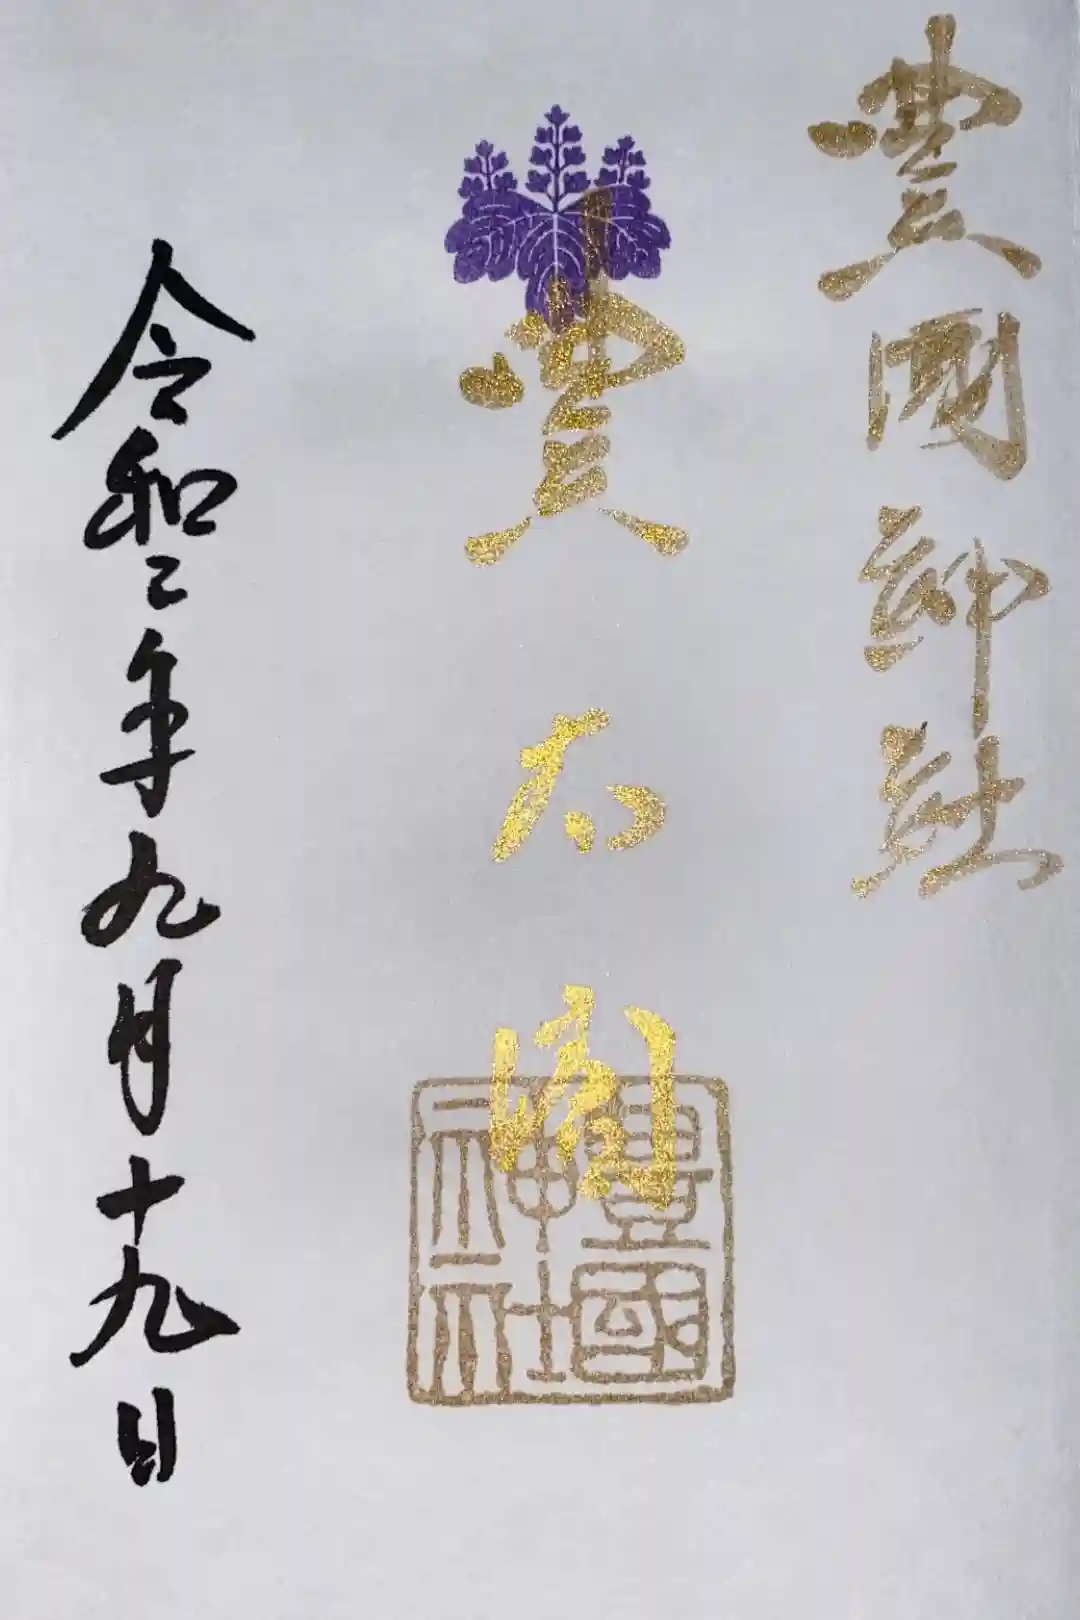 豊國神社
豊太閤
豊國神社
令和二年九月十九日